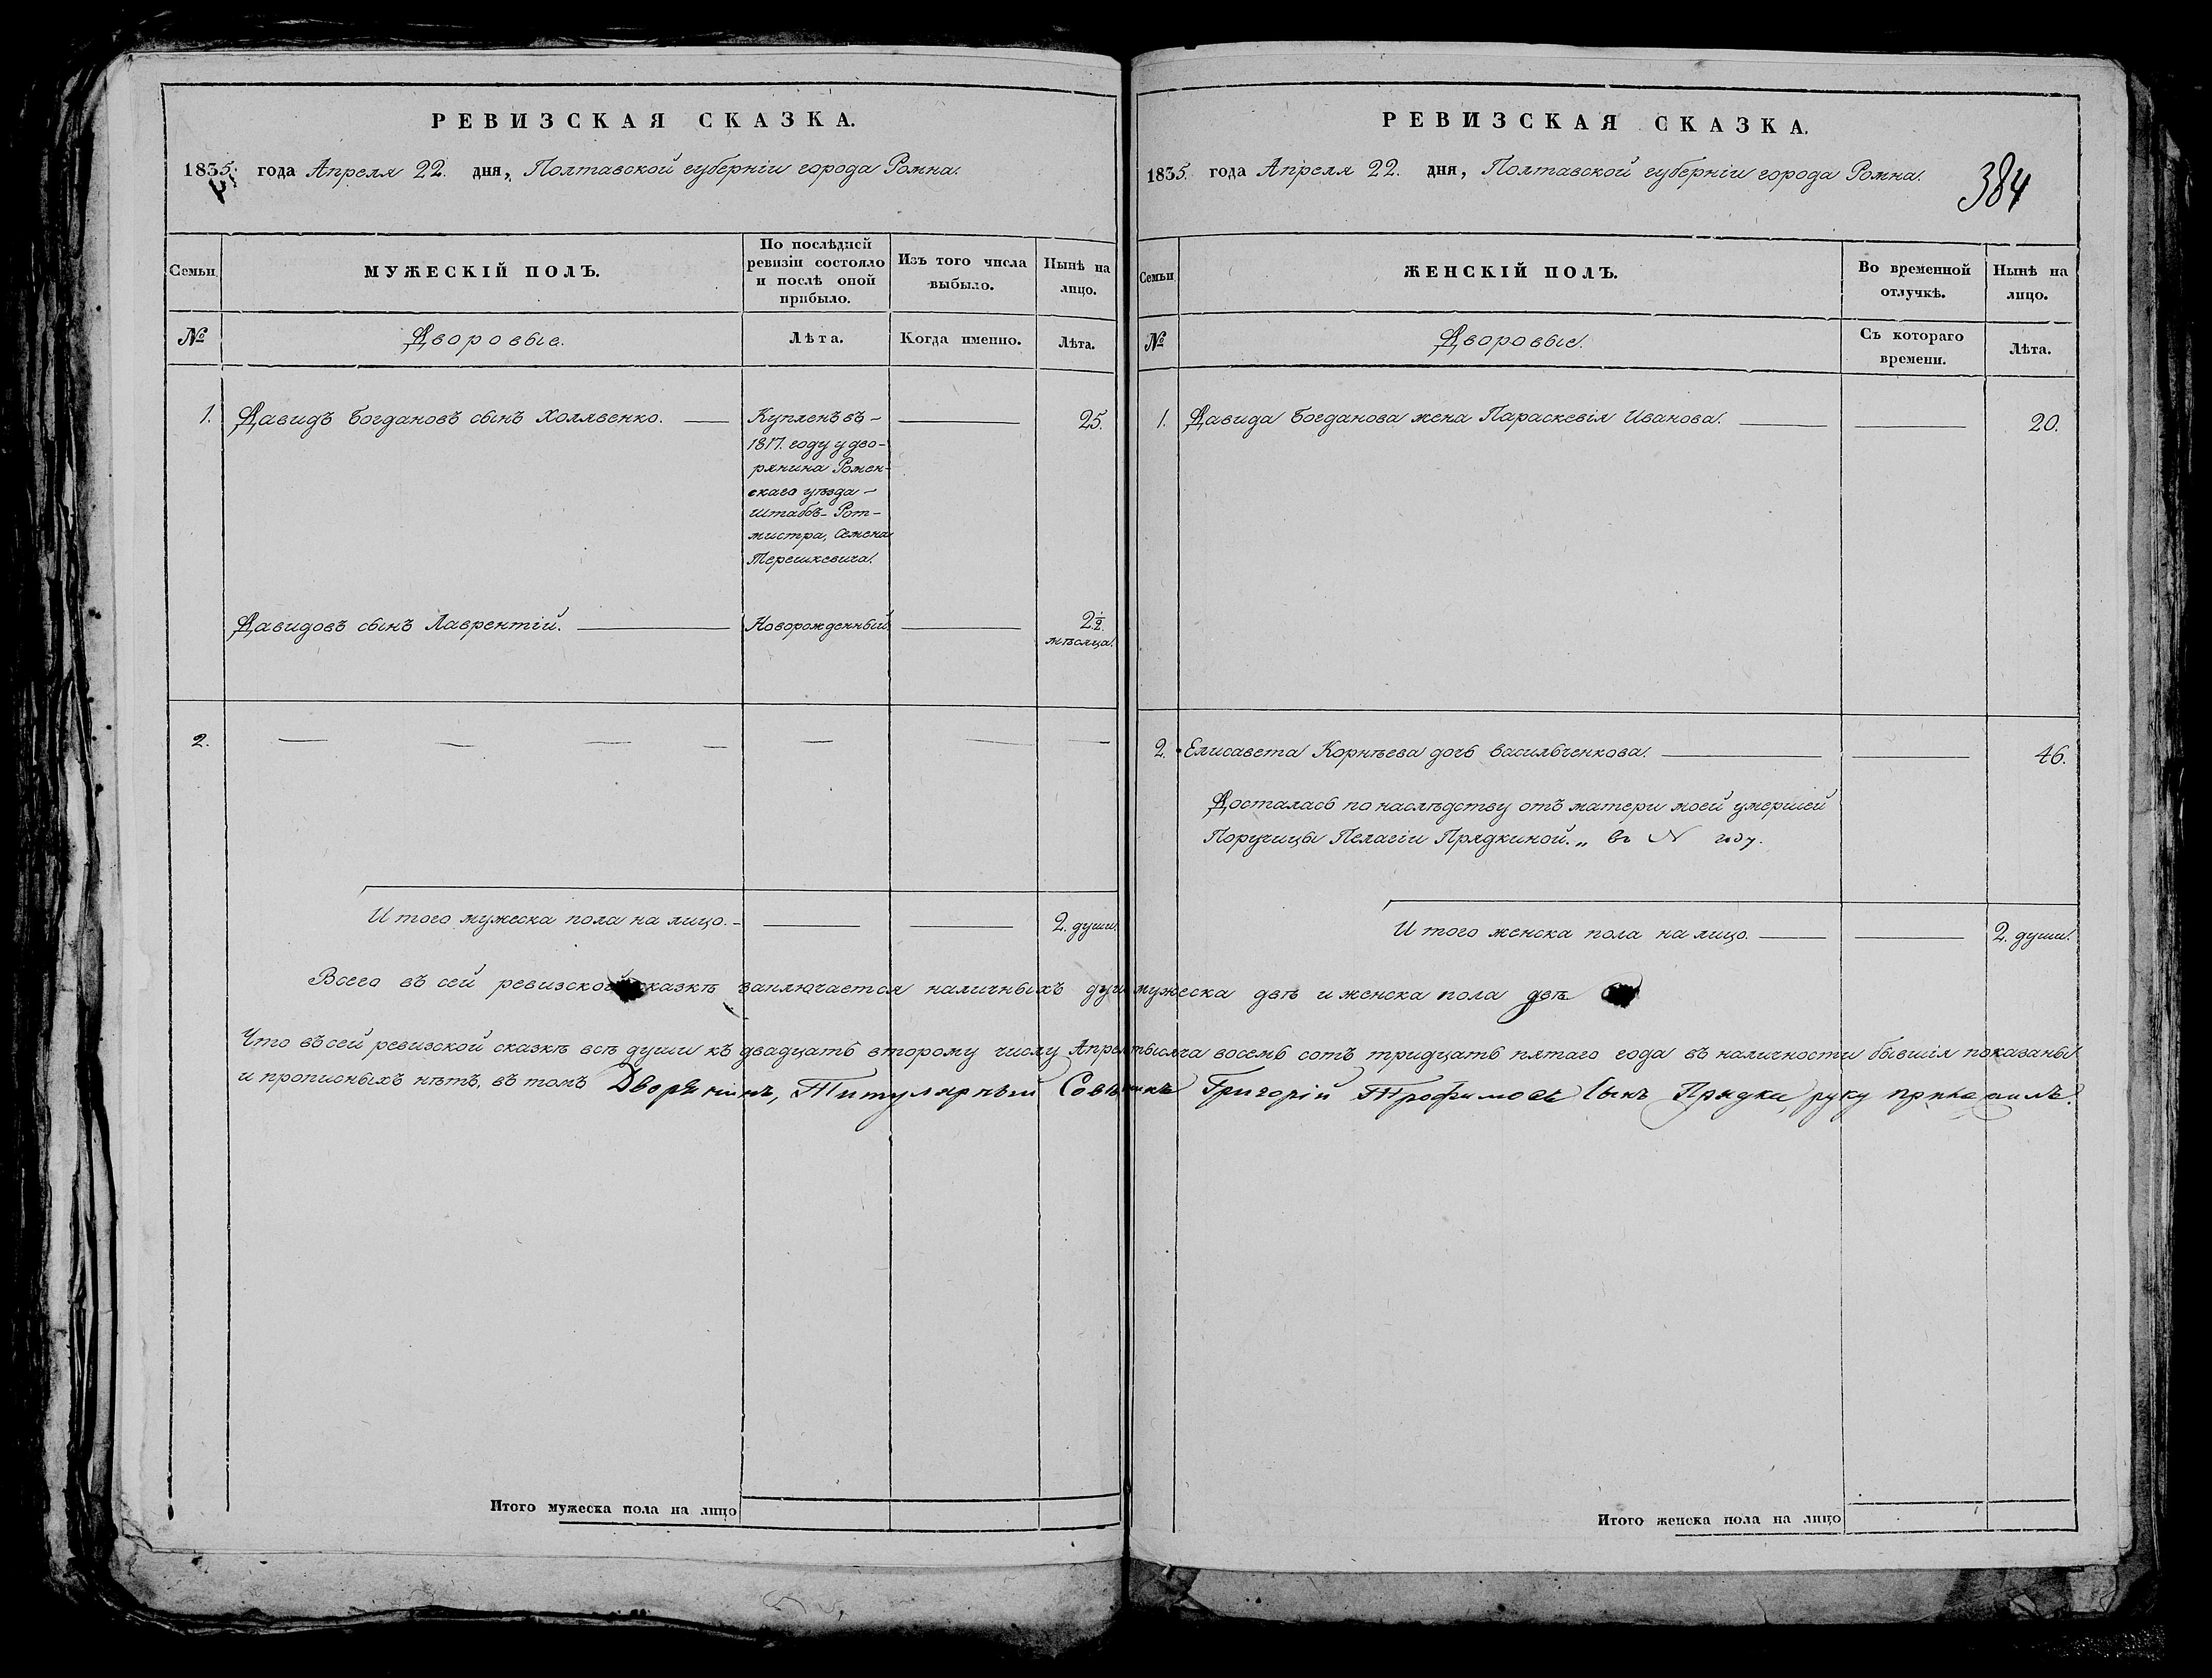 РЕВИЗСКАЯ СКАЗКА.
1835. года Апреля 22. дня, Полтавской губерніи города Ромна.
Семьи
МУЖЕСКІЙ ПОЛЪ.
По послѣдней
ревизіи состояло
и послѣ оной
прибыло.
Изъ того числа
выбыло.
Нынѣ на
лицо.
№
Дворовые.
Лѣта.
Когда именно.
Лѣта.
1. Давидъ Богдановъ сынъ Холявенко. — Купленъ въ — 25.
1817. году у дво-
рянина Ромен-
скаго уѣзда —
Штабъ-Рот-
мистра, Семена
Терешкевича.
Давидовъ сынъ Лаврентій. — Новорожденный — 2 1/2
мѣсяца.
2. — — — — — — —
Итого мужеска пола на лицо. — — — 2. души.
РЕВИЗСКАЯ СКАЗКА.
1835. года Апреля 22. дня, Полтавской губерніи города Ромна.
384
Семьи
ЖЕНСКІЙ ПОЛЪ.
Во временной
отлучкѣ.
Нынѣ на
лицо.
№
Дворовые.
Съ котораго
времени.
Лѣта.
1. Давида Богданова жена Параскевія Иванова. — — 20.
2. Елисавета Корнѣева дочь Васильченкова. — — 46.
Досталась по наслѣдству отъ матери моей умершей
Поручицы Пелагіи Прядкиной. „ въ году.
Итого женска пола на лицо. — — 2. души.
Всего въ сей ревизской сказкѣ заключается наличныхъ душ мужеска двѣ и женска пола двѣ
Что въ сей ревизской сказкѣ всѣ души къ двадцать второму числу Апреля тысяча восемь сотъ тридцать пятаго года въ наличности бывшія показаны
и прописныхъ нѣтъ, въ томъ Дворянинъ, Титулярный Совѣтникъ Григорій Трофимовъ Сынъ Прядки, руку приложилъ.
Итого мужеска пола на лицо
Итого женска пола на лицо